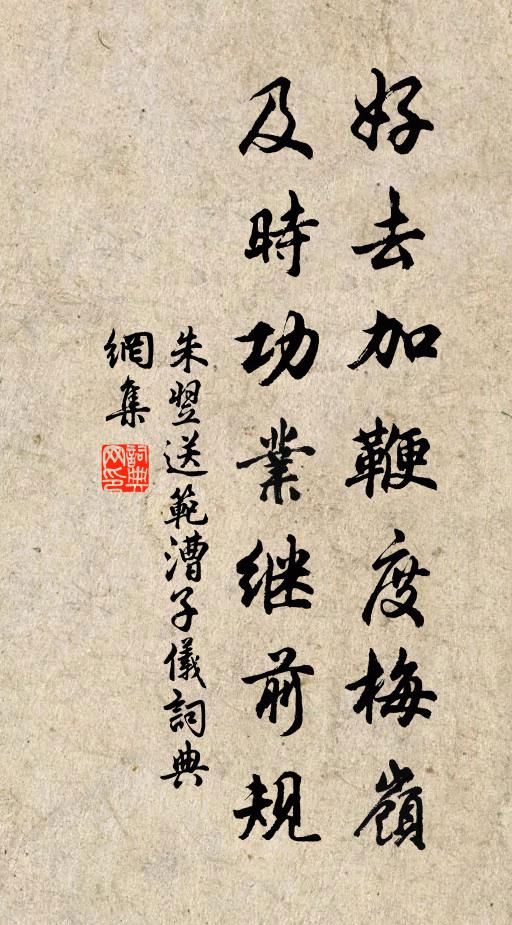 好去加鞭度梅嶺
及時功業继前規
朱翌送範漕子儀詞典
網集
詞典網印